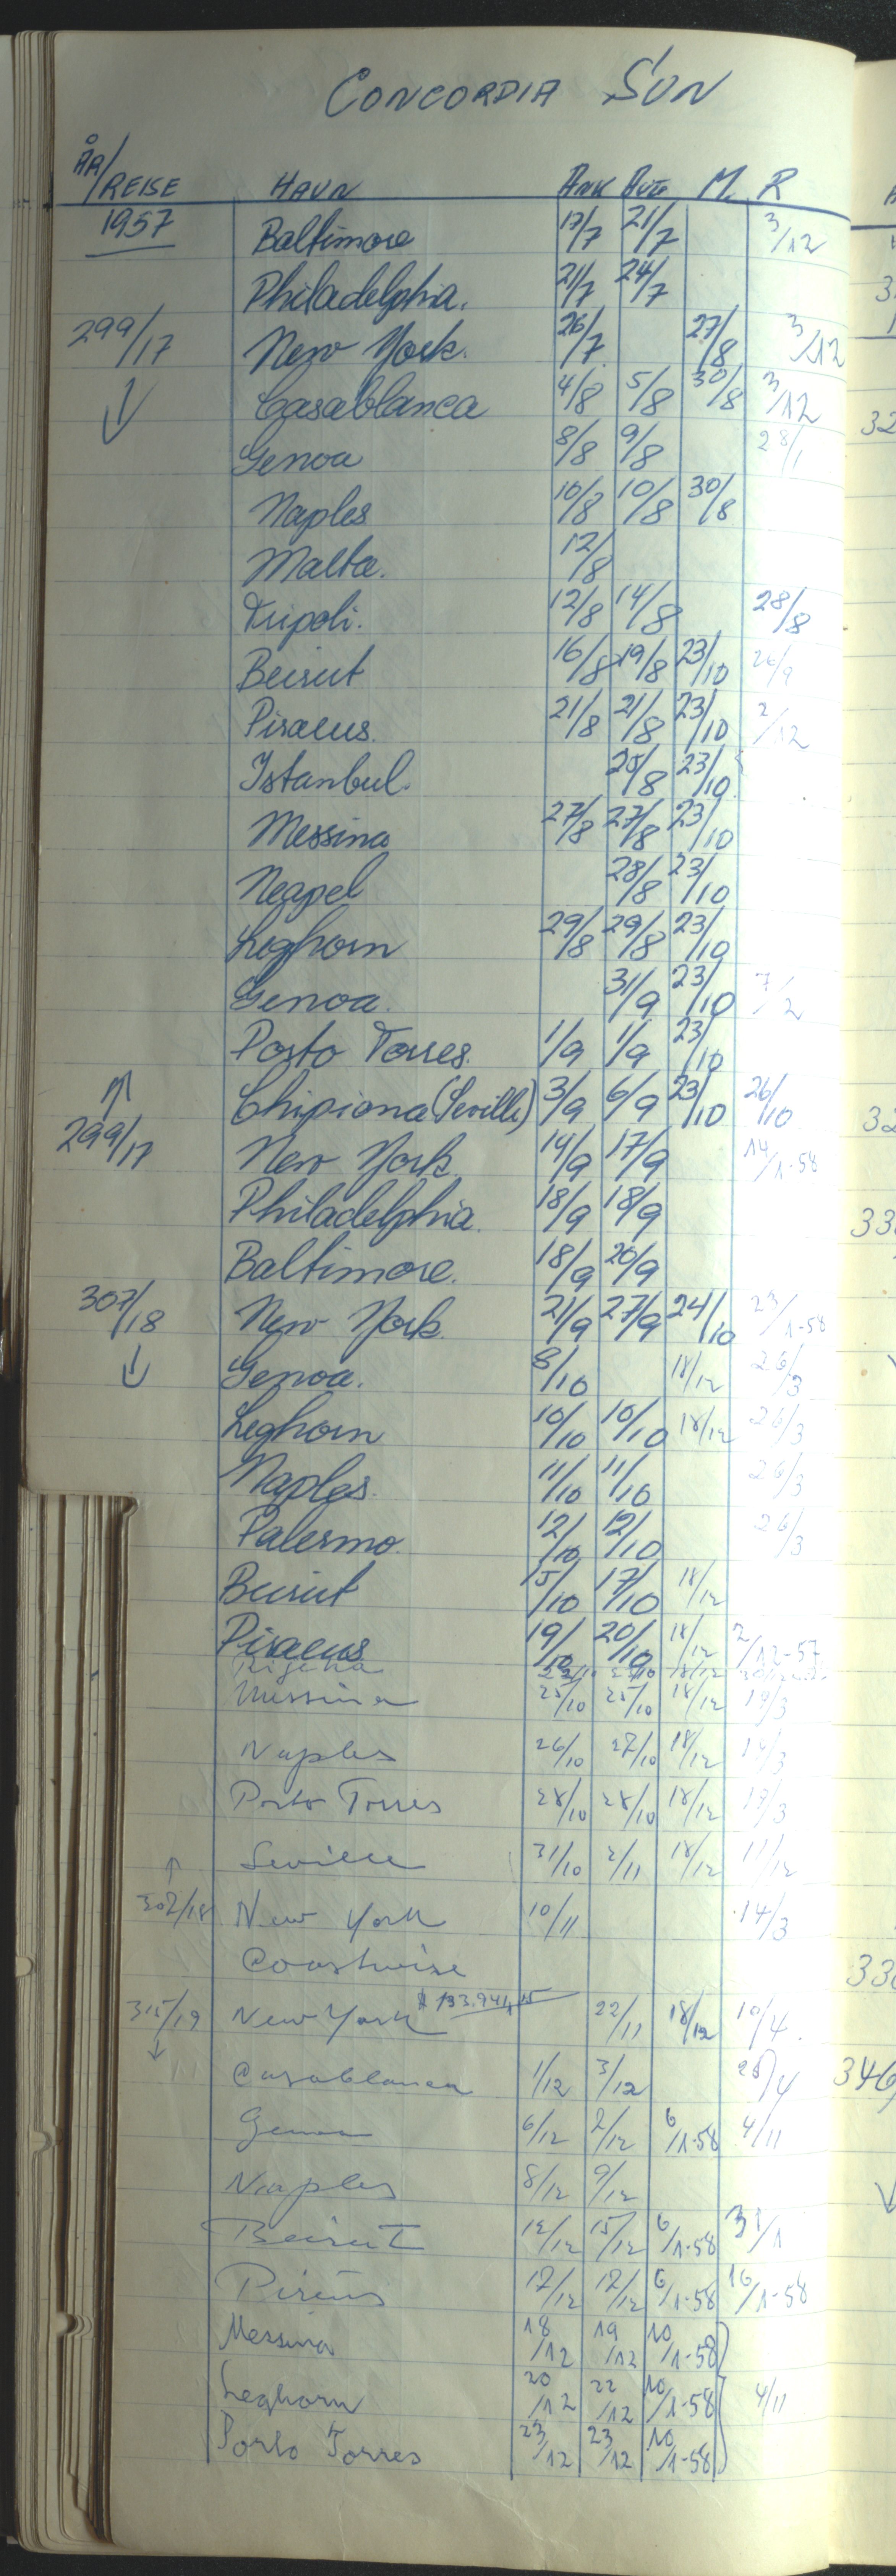 CONCORDIA SUN
ÅR/REISE HAVN ANK M. R
1957 Baltimore 17/7 21/7 3/12
Philadelphia. 21/7 24/7
299/17 New York. 26/7 27/8 3/12
↓ Casablanca 4/8 5/8 30/8 3/12
Genoa 8/8 9/8 28/1
Naples 10/8 10/8 30/8
Malta. 12/8
Tripoli. 12/8 14/8 28/8
Beirut 16/8 19/8 23/10 26/9
Piraeus. 21/8 21/8 23/10 2/12
Istanbul. 25/8 23/10
Messina 27/8 27/8 23/10
Neapel 28/8 23/10
Leghorn 29/8 29/8 23/10
Genoa. 31/9 23/10 7/2
Porto Torres. 1/9 1/9 23/10
↑ Chipiona (Seville) 3/9 6/9 23/10 26/10
299/17 New York 14/9 17/9 14/1-58
Philadelphia. 18/9 18/9
Baltimore. 18/9 20/9
307/18 New York 21/9 27/9 24/10 23/1-58
↓ Genoa. 8/10 18/12 26/3
Leghorn 10/10 10/10 18/12 26/3
Naples. 11/10 11/10 26/3
Palermo. 12/10 12/10 26/3
Beirut 15/10 17/10 18/12
Piraeus 19/10 20/10 18/12 2/12-57
18/12
Messina 25/10 25/10 18/12 19/3
Naples 26/10 27/10 18/12 19/3
Porto Torres 28/10 28/10 18/12 19/3
↑ Seville 31/10 2/11 18/12 11/12
307/18 New York 10/11 14/3
Coastwise
315/19 New York $ 133.944,15 22/11 18/12 10/4
↓ Casablanca 1/12 3/12 25/4
Genoa 6/12 7/12 6/1-58 4/11
Naples 8/12 9/12
Beirut 12/12 15/12 6/1-58 31/1
Pireus 17/12 17/12 6/1-58 16/1-58
Messina 18/12 19/12 10/1-58
Leghorn 20/12 22/12 10/1-58 4/11
Porto Torres 23/12 23/12 10/1-58